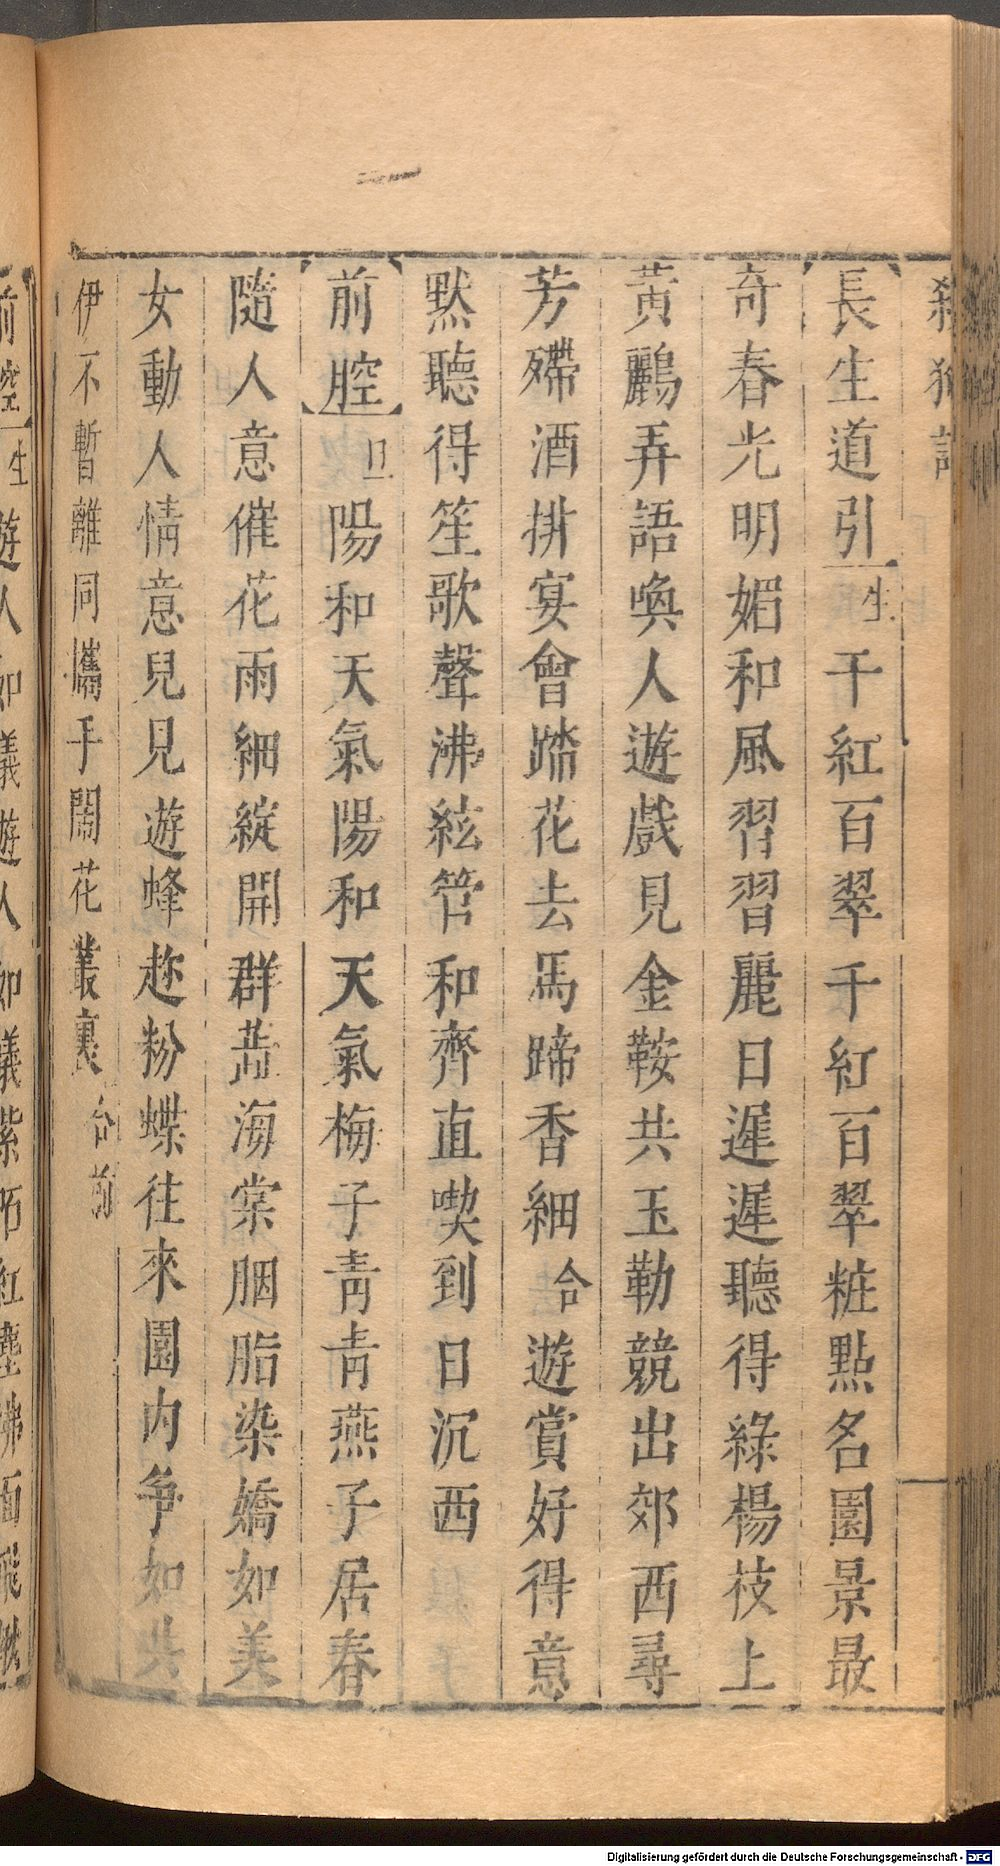 殺狗記
長生道引 生 千紅百翠千紅百翠粧點名園景最
奇春光明媚和風習習麗日遲遲聽得綠楊枝上
黃鸝弄語喚人遊戲見金鞍共玉勒競出郊西尋
芳殢酒排宴會踏花去馬蹄香細 合 遊賞好得意
默聽得笙歌聲沸絃管和齊直喫到日沉西
前腔 旦 陽和天氣陽和天氣梅子青青燕子居春
隨人意催花雨細綻開群蕋海棠胭脂染嬌如美
女動人情意兒見遊蜂趂粉蝶往來園內爭如共
伊不暫離同攜手鬧花叢裏 合前
前腔 生 遊人如蟻遊人如蟻紫陌紅塵拂面
Digitalisierung gefördert durch die Deutsche Forschungsgemeinschaft - DFG